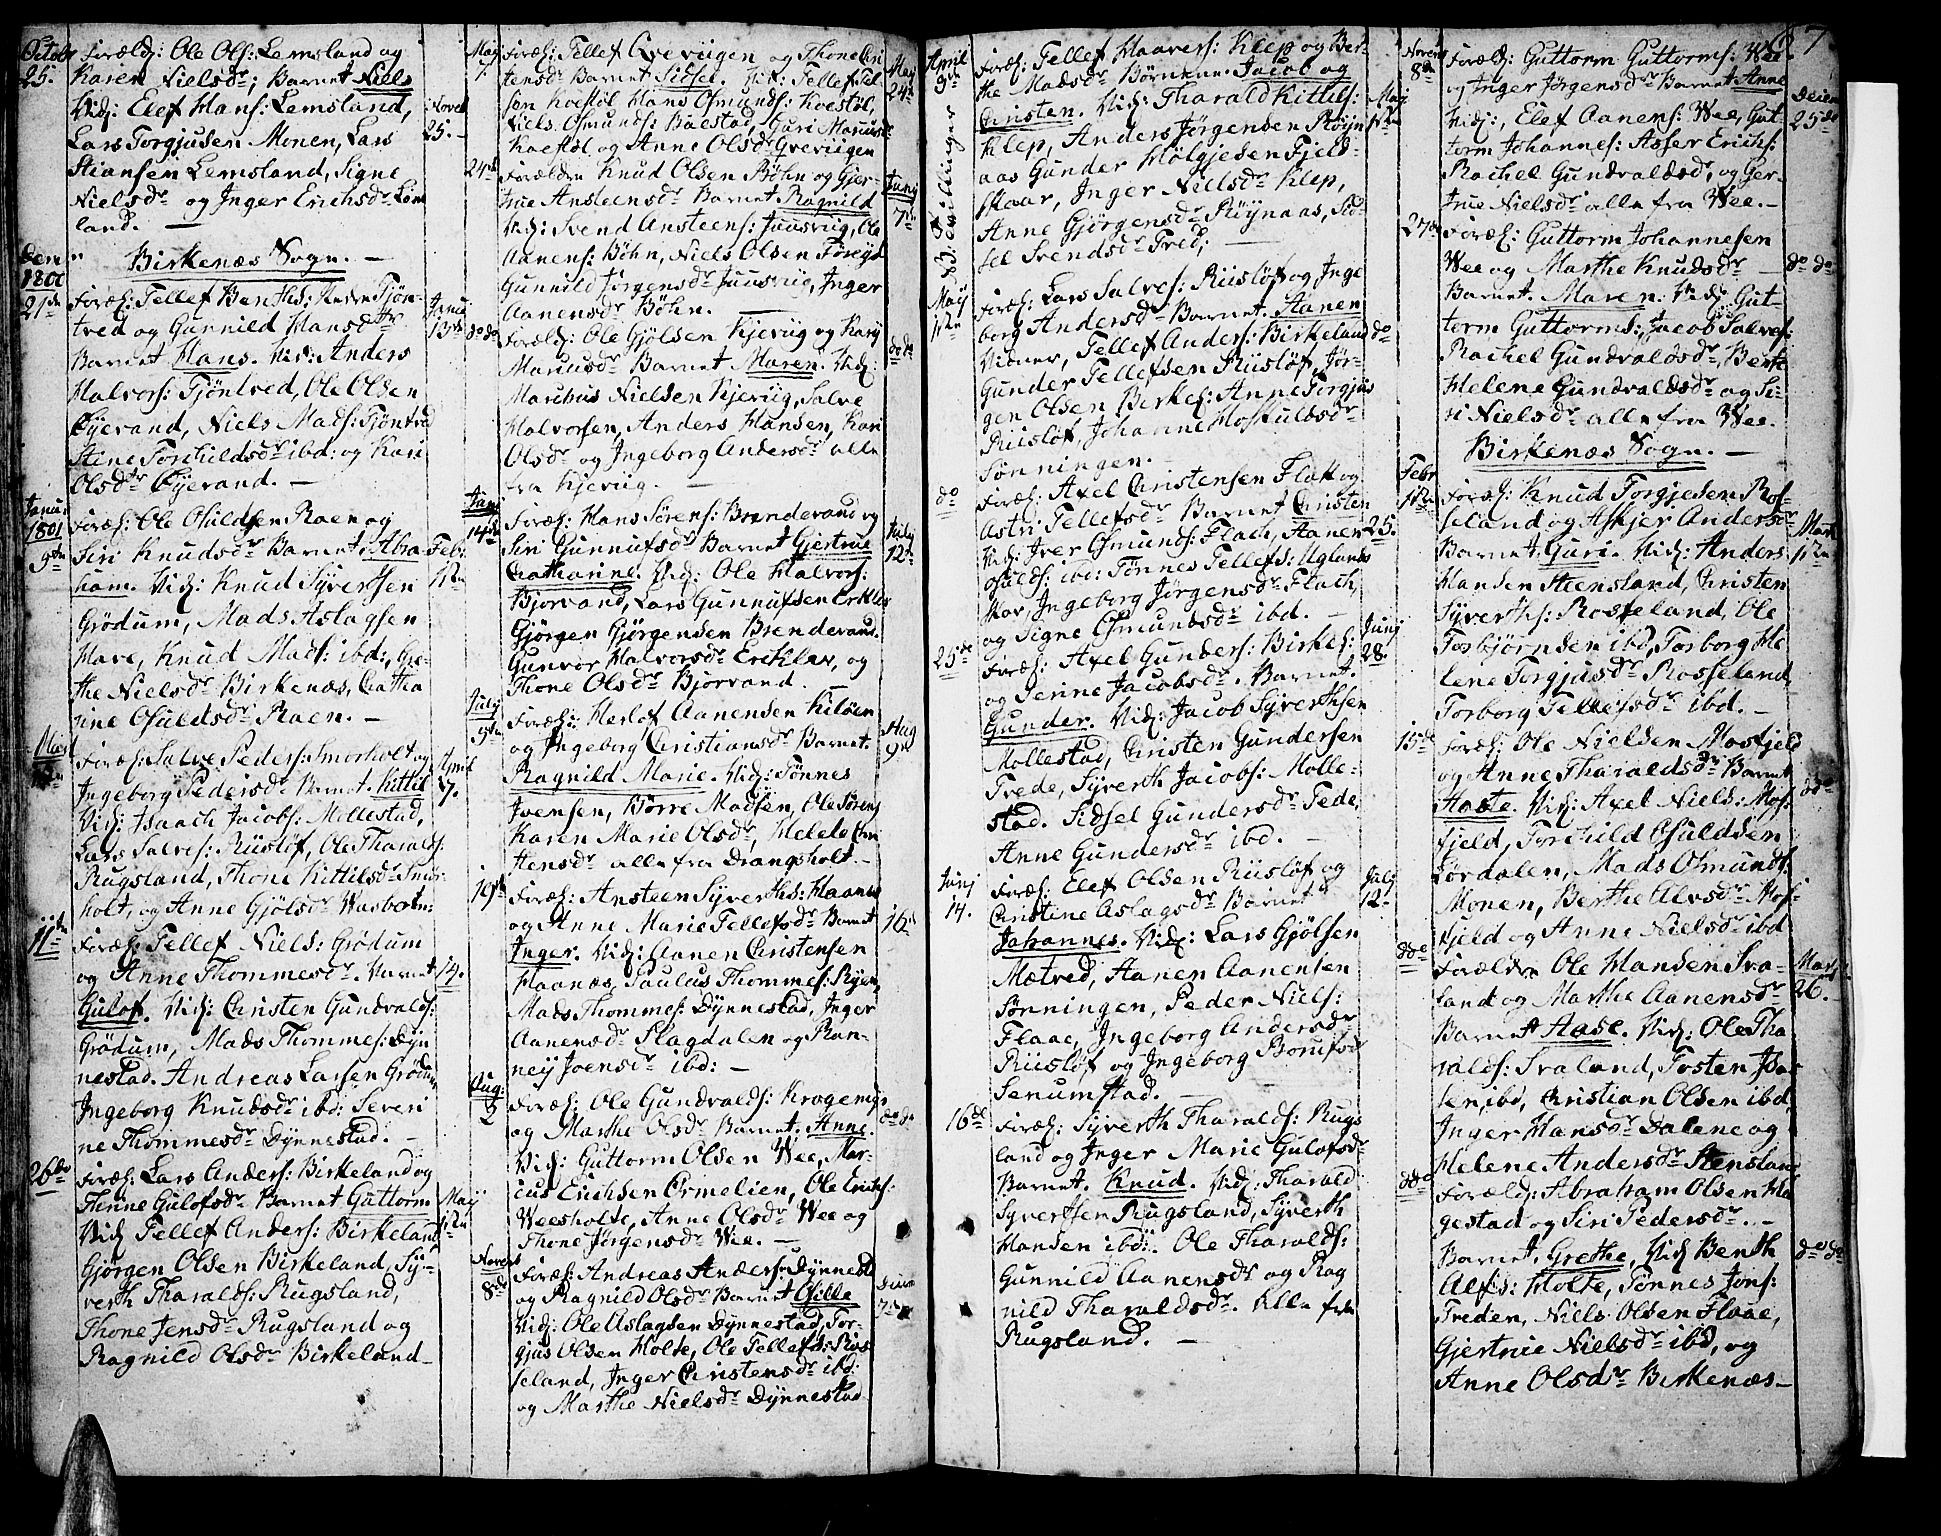 Octobr
25.
Foræld: Ole Ols: Lemsland og
Karen Nielsdr; Barnet Niels
Vid: Elef Hans: Lemsland,
Lars Torgjusen Monen, Lars
Stiansen Lemsland, Signe
Nielsdr og Inger Erichsdr Lem
land. —
Novbr
25.
Birkenæs Sogn. —
1800
21de
Foræ: Tellef Benths: Tjøn-
tred og Gunnild Hansdr
Barnet Hans. Vid: Anders
Halvors: Tjøntved, Ole Olsen
Øyerand, Niels Mads: Tjøntved
Stine Torchildsdr ibd: og Kari
Olsdr Øyerand. —
Janu
13de
Janu:
1801
9de
Foræ: Ole Osuldsen Raen og
Siri Knudsdr Barnet. Abra
ham. Vid: Knud Syvertsen
Grødum, Mads Aslagsen
Hare, Knud Mads: ibd:, Gre-
the Nielsdr Birkenæs, Catha
rine Osuldsdr Raen. —
Febr
1ste
Mart
Foræ: Salve Peders: Smorholt og
Ingeborg Pedersdr Barnet. Kittil
Vid: Isaach Jacobs: Mollestad,
Lars Salves: Riisløf, Ole Tharalds:
Rugsland, Thone Kittilsdr Smor-
holt, og Anne Gjølsdr Wasbotn:
April
7.
11te
Foræ: Tellef Niels: Grødum
og Anne Thommesdr. Barnet
Gulof. Vid: Christen Gundvalds:
Grødum, Mads Thommes: Dyn
nestad. Andreas Larsen Grødum
Ingeborg Knudsdr ibd: Severi
ne Thommesdr Dynnestad. —
14.
26de
Foræ: Lars Anders: Birkeland og
Thone Gulofsdr Barnet Guttorm
Vid Tellef Anders: Birkeland
Gjørgen Olsen Birkeland, Sy-
verth Tharalds: Rugsland,
Thone Jensdr Rugsland og
Ragnild Olsdr Birkeland —
May
May
7.
Foræ: Tellef Qveviigen og Thone Chri
tensdr Barnet Sidsel. Vid: Tellef Tel
sen Koestøl Hans Osmunds: Koestøl,
Niels Osmunds: Baestad, Guri Mariusdr
Koestøl og Anne Olsdr Qveviigen
May
24de
24de
Forældre Knud Olsen Bøhn og Gjer-
true Ansteensdr Barnet Ragnild
Vid: Svend Ansteens: Juusviig, Ole
Aanens: Bøhn, Niels Olsen Forøyd
Gunnild Jørgensdr Juusviig, Inger
Aanensdr Bøhn. —
Junj
7de
do do
Foræld: Ole Gjølsen Kjeviig og Kari
Mariusdr Barnet Maren. Vid:
Marihus Nielsen Kjeviig, Salve
Halvorsen, Anders Hansen, Kari
Olsdr og Ingeborg Andersdr alle
fra Kjeviig. —
do do
Junj
14de
Foræ: Hans Sørens: Brandevand og
Siri Gunnufsdr Barnet Gjertrue
Catharine. Vid: Ole Halvors:
Bjorvand, Lars Gunnufsen Erklev
Gjørgen Gjørgensen Brenderand
Gunvor Halvorsdr Ereklev, og
Thone Olsdr Bjorvand. —
July
12te
July
5te
Foræ: Herlof Aanensen Kiløen
og Ingeborg Christiansdr Barnet.
Ragnild Marie. Vid: Tønnes
Ivensen, Børre Madsen, Ole Sørens
Karen Marie Olsdr, Helele Chri
stensdr alle fra Drangsholt. —
Aug
9de
19de
Foræ: Ansteen Syverths: Haanes
og Anne Marie Tellefsdr Barnet
Inger. Vid: Aanen Christensen
Haanæs, Paulus Thommes: Ryen,
Mads Thommes: Dynnestad, Inger
Aanensdr Slagdalen og Ran-
nej Joensdr ibd: —
16de
Aug:
2
Foræ: Ole Gundvalds: Kragemyr
og Marthe Olsdr Barnet: Anne.
Vid: Guttorm Olsen Wee, Mar-
cus Erichsen Ormelien, Ole Erichs:
Weesholte, Anne Olsdr Wee og
Thone Jørgensdr Wee. —
do do
Novbr
8de
Foræ: Andreas Anders: Dynnestd
og Ragnild Olsdr Barnet Gille
Vid: Ole Aslagsen Dynnestad, Tor-
gjus Olsen Holte, Ole Tellefs: Ros
seland, Inger Christensdr ibd:
og Marthe Nielsdr Dynnestad
67
April
9de
Foræ: Tellef Haavers: Klep og Ber-
the Madsdr Børnene. Jacob og
Christen. Vid: Tharald Kittils:
Klep, Anders Jørgensen Røyn
aas Gunder Hølgjesen Fjeld-
skaar, Inger Nielsdr Klep,
Anne Gjørgensdr Røynaas, Sid-
sel Svendsdr Tred; —
Tvillinger
May
1ste
May
1ste
Foræ: Lars Salves: Riisløf og Inge
borg Andersdr Barnet. Aanen
Vidner, Tellef Anders: Birkeland
Gunder Tellefsen Riisløf, Jør-
gen Olsen Birke: Anne Torgjus
Riisløf, Johanne Hoskuldsdr
Sønningen. —
do
do
Foræ: Axel Christensen Flak og
Astri Tellefsdr Barnet Christen
Vid: Iver Osmunds: Flach, Aanen
Osulds: ibd: Tønnes Tellefs: Uglands
kar, Ingeborg Jørgensdr Flach,
og Signe Osmundsdr ibd. —
25.
25de
Foræ: Axel Gunders: Birkes:
og Jenne Jacobsdr. Barnet.
Gunder. Vid: Jacob Syverthsen
Mollestad, Christen Gundersen
Trede, Syverth Jacobs: Molle-
stad. Sidsel Gundersdr Tede,
Anne Gundersdr ibd. —
Junj
28.
Junj
14.
Foræ: Elef Olsen Riisløf og
Christine Aslagsdr Barnet
Johannes. Vid: Lars Gjølsen
Mætved, Aanen Aanensen
Sønningen, Peder Niels:
Flaae, Ingeborg Andersdr
Riisløf og Ingeborg Borufsdr
Senumstad. —
July
12te
16de
Foræ: Syverth Tharalds: Rugs
land og Inger Marie Gulofsdr
Barnet. Knud. Vid: Tharald
Syvertsen Rugsland, Syverth
Hansen ibd: Ole Tharalds:
Gunnild Aanensdr og Rag
nild Tharaldsdr. Alle fra
Rugsland. —
Novembr
8de
Foræ: Guttorm Guttorms: Wee.
og Inger Jørgensdr Barnet Anne
Vid:, Elef Aanens: Wee, Gut-
torm Johannes: Asser Erichs:
Rachel Gundvaldsdr, og Ger-
true Nielsdr alle fra Wee. —
Decem
25de
27de
Foræ: Guttorm Johannesen
Wee og Marthe Knudsdr —
Barnet. Maren. Vid: Gut-
torm Guttorms:, Jacob Salves:
Rachel Gundvaldsdr, Berte
Helene Gundvaldsdr og Si-
ri Nielsdr alle fra Wee.
do do
Birkenæs Sogn. —
Febr
1ste
Foræ: Knud Torgjesen Ros-
seland og Askjer Andersdr
Barnet. Guri. Vid: Anders
Hansen Steensland, Christen
Syverths: Rosseland, Ole
Torbjørnsen ibd, Torborg He
lene Torgjusdr Rosseland,
Torborg Tellefsdr ibd. —
Mart
1ste
15de
Foræ: Ole Nielsen Mosfjeld
og Anne Tharaldsdr Barnet
Aaste. Vid: Axel Niels: Mos-
fjeld, Torchild Osuldsen
Lørdalen, Mads Osmunds:
Monen, Berthe Alvsdr Mos-
fjeld og Anne Nielsdr ibd
ddo
ddo
Forældre Ole Hansen Sva-
land og Marthe Aanensdr
Barnet Aase. Vid: Ole Tha-
ralds: Svaland, Tosten Isa
sen, ibd, Christian Olsen ibd,
Inger Hansdr Dalene og
Helene Andersdr Stensland
Mart
26.
ddo
Foræld: Abraham Olsen Hå
gestad og Siri Pedersdr. —
Barnet. Grethe, Vid Benth
Alfs: Holte, Tønnes Jons:
Treden, Niels Olsen Flaae,
Gjertrue Nielsdr ibd, og
Anne Olsdr Birkenæs —
do do